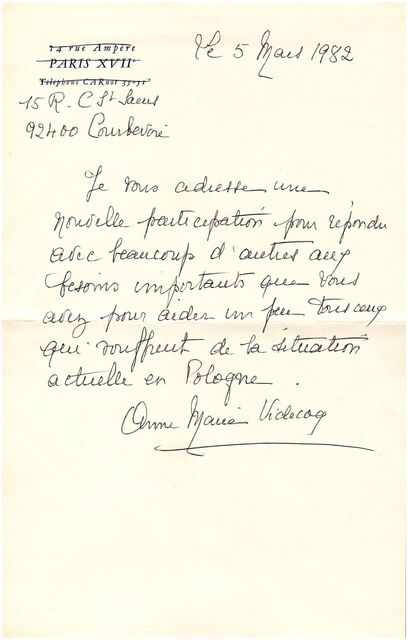 14 rue Ampère
PARIS XVIIe
Téléphone CARnot 35-51
Le 5 Mars 1982
15 R. C St Saens
92400 Courbevoie
Je vous adresse une
nouvelle participation pour répondre
avec beaucoup d'autres aux
besoins importants que vous
avez pour aider un peu tous ceux
qui souffrent de la situation
actuelle en Pologne.
Anne Marie Videcoq